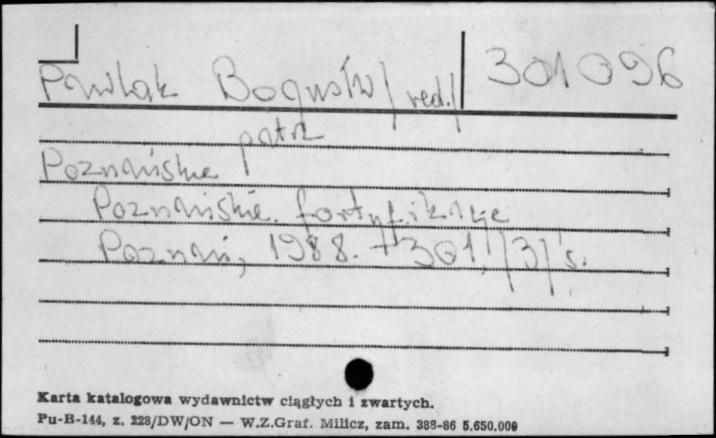 Pawlak Bogusław /red./ 301096
patrz
Poznańskie
Poznańskie fortyfikacje
Poznań, 1988. 301, /3/ s.
Karta katalogowa wydawnictw ciągłych i zwartych.
Pu-B-144, z. 228/DW/ON — W.Z.Graf. Milicz, zam. 388-86 5.650.000